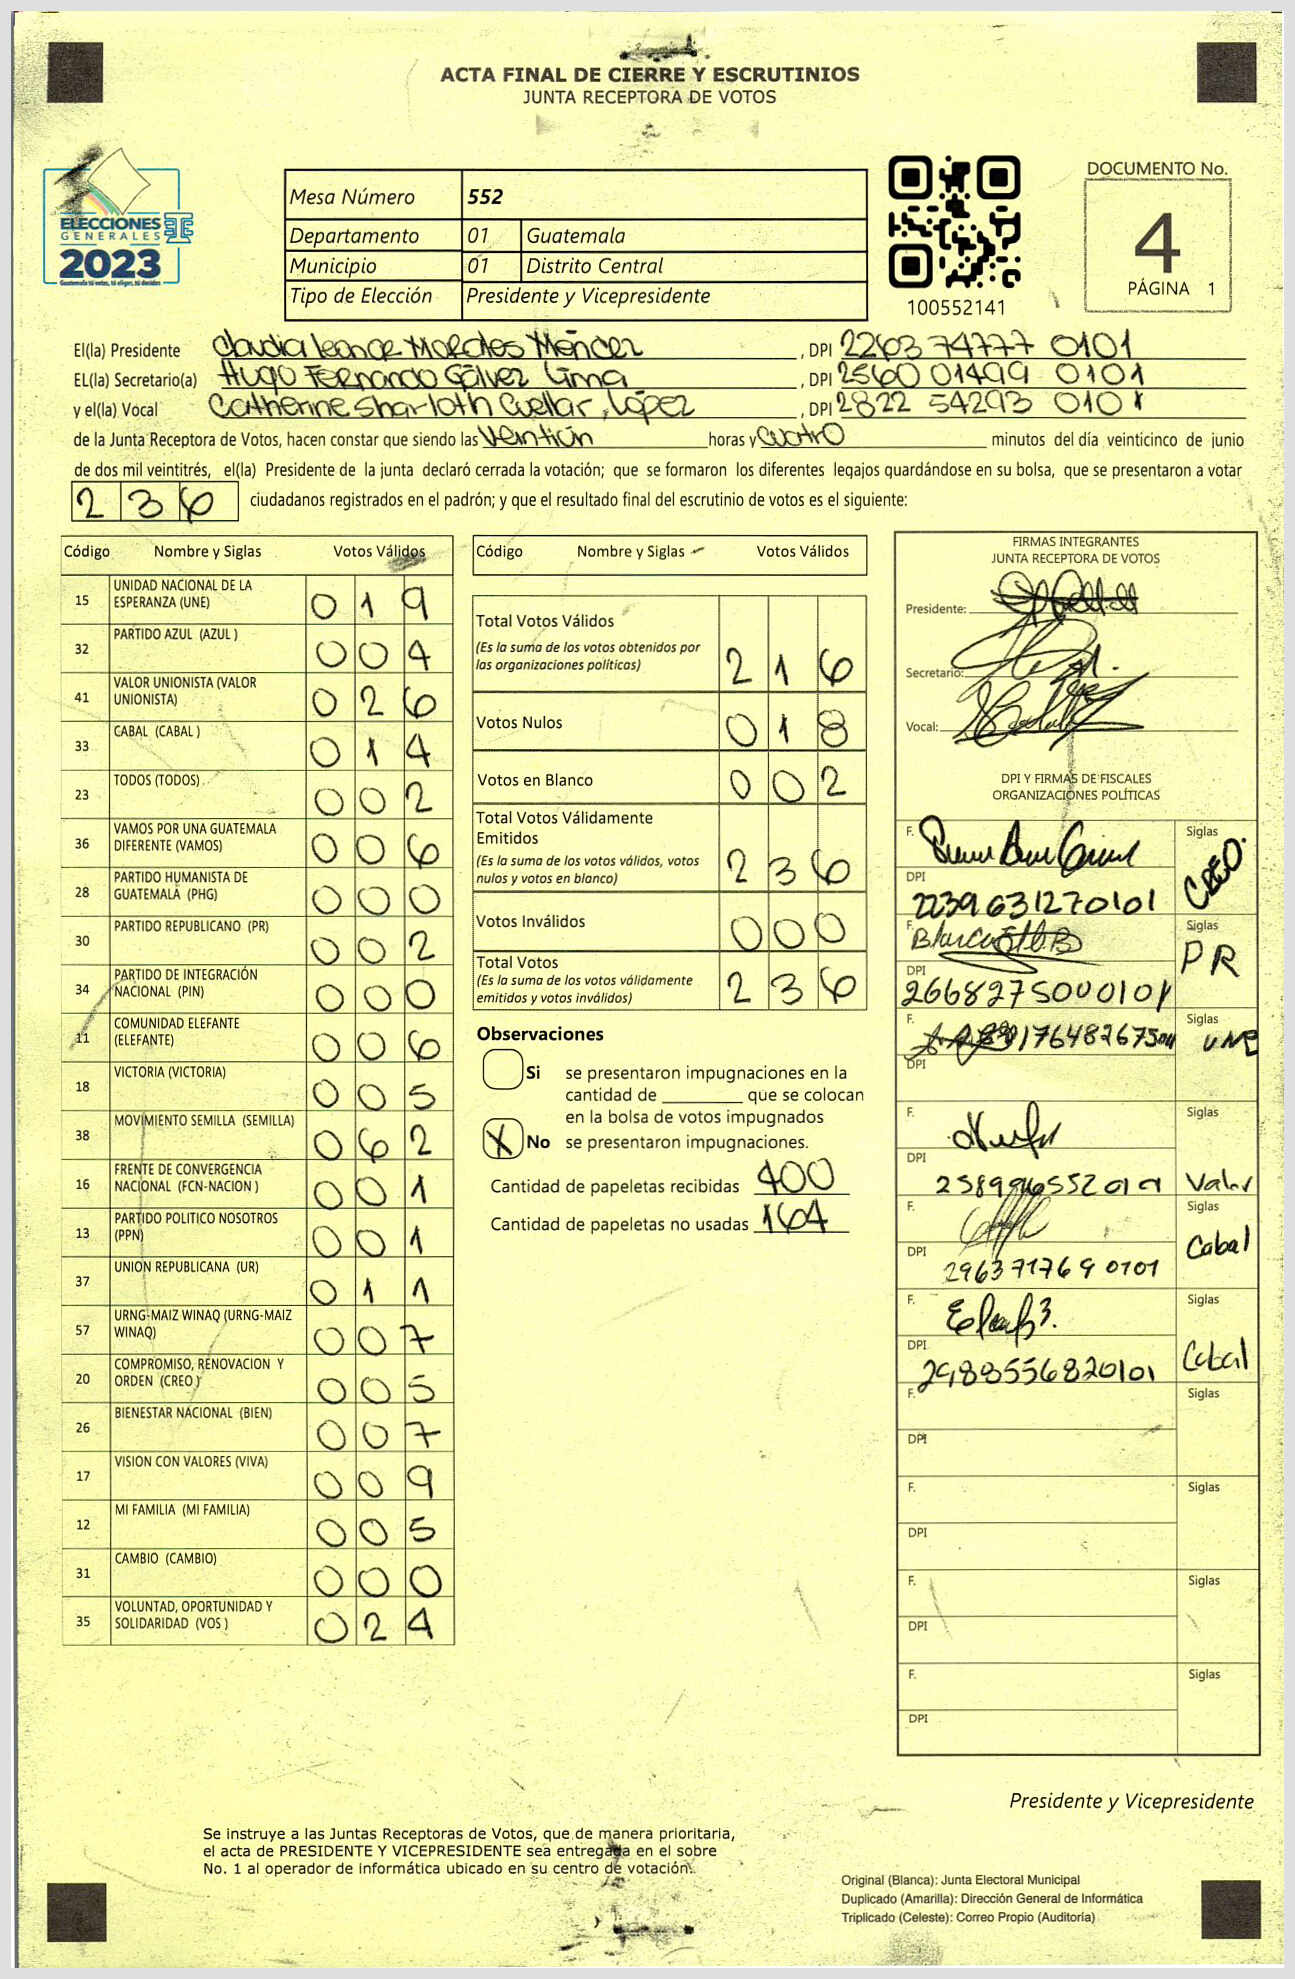 ACTA FINAL DE CIERRE Y ESCRUTINIOS
JUNTA RECEPTORA DE VOTOS
ELECCIONES
GENERALES
2023
Guatemala tú votas, tú eliges, tú decides
Mesa Número 552
Departamento 01 Guatemala
Municipio 01 Distrito Central
Tipo de Elección Presidente y Vicepresidente
100552141
DOCUMENTO No.
4
PÁGINA 1
El(la) Presidente Claudia Leonor Morales Méndez, DPI 2263 74777 0101
EL(la) Secretario(a) Hugo Fernando Gálvez Lima, DPI 2560 01499 0101
y el(la) Vocal Catherine Sharloth Cuellar López, DPI 2822 54293 0101
de la Junta Receptora de Votos, hacen constar que siendo las Veintiún horas y cuatro minutos del día veinticinco de junio
de dos mil veintitrés, el(la) Presidente de la junta declaró cerrada la votación; que se formaron los diferentes legajos guardándose en su bolsa, que se presentaron a votar
236 ciudadanos registrados en el padrón; y que el resultado final del escrutinio de votos es el siguiente:
Código Nombre y Siglas Votos Válidos
15 UNIDAD NACIONAL DE LA ESPERANZA (UNE) 019
32 PARTIDO AZUL (AZUL ) 004
41 VALOR UNIONISTA (VALOR UNIONISTA) 026
33 CABAL (CABAL ) 014
23 TODOS (TODOS) 002
36 VAMOS POR UNA GUATEMALA DIFERENTE (VAMOS) 006
28 PARTIDO HUMANISTA DE GUATEMALA (PHG) 000
30 PARTIDO REPUBLICANO (PR) 002
34 PARTIDO DE INTEGRACIÓN NACIONAL (PIN) 000
11 COMUNIDAD ELEFANTE (ELEFANTE) 006
18 VICTORIA (VICTORIA) 005
38 MOVIMIENTO SEMILLA (SEMILLA) 062
16 FRENTE DE CONVERGENCIA NACIONAL (FCN-NACION ) 001
13 PARTIDO POLITICO NOSOTROS (PPN) 001
37 UNION REPUBLICANA (UR) 011
57 URNG-MAIZ WINAQ (URNG-MAIZ WINAQ) 007
20 COMPROMISO, RENOVACION Y ORDEN (CREO ) 005
26 BIENESTAR NACIONAL (BIEN) 007
17 VISION CON VALORES (VIVA) 009
12 MI FAMILIA (MI FAMILIA) 005
31 CAMBIO (CAMBIO) 000
35 VOLUNTAD, OPORTUNIDAD Y SOLIDARIDAD (VOS ) 024
Código Nombre y Siglas Votos Válidos
Total Votos Válidos
(Es la suma de los votos obtenidos por
las organizaciones políticas) 216
Votos Nulos 018
Votos en Blanco 002
Total Votos Válidamente
Emitidos
(Es la suma de los votos válidos, votos
nulos y votos en blanco) 236
Votos Inválidos 000
Total Votos
(Es la suma de los votos válidamente
emitidos y votos inválidos) 236
Observaciones
Si se presentaron impugnaciones en la
cantidad de ________ que se colocan
en la bolsa de votos impugnados
X No se presentaron impugnaciones.
Cantidad de papeletas recibidas 400
Cantidad de papeletas no usadas 164
FIRMAS INTEGRANTES
JUNTA RECEPTORA DE VOTOS
Presidente:
Secretario:
Vocal:
DPI Y FIRMAS DE FISCALES
ORGANIZACIONES POLÍTICAS
F. Siglas CREO.
DPI 2239631270101
F. Siglas PR
DPI 2668275000101
F. Siglas UNE
DPI
F. Siglas Valor
DPI
F. Siglas Cabal
DPI 2963717690101
F. Siglas Cabal
DPI 2988556820101
F. Siglas
DPI
F. Siglas
DPI
F. Siglas
DPI
F. Siglas
DPI
Presidente y Vicepresidente
Se instruye a las Juntas Receptoras de Votos, que de manera prioritaria,
el acta de PRESIDENTE Y VICEPRESIDENTE sea entregada en el sobre
No. 1 al operador de informática ubicado en su centro de votación.
Original (Blanca): Junta Electoral Municipal
Duplicado (Amarilla): Dirección General de Informática
Triplicado (Celeste): Correo Propio (Auditoría)